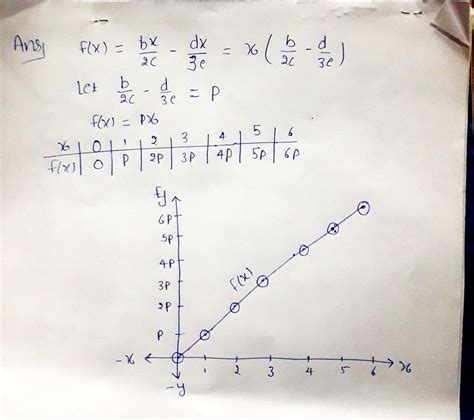 Ans) f(x) = bx/2c - dx/3e = x ( b/2c - d/3e )
Let b/2c - d/3e = P
f(x) = px
x | 0 | 1 | 2 | 3 | 4 | 5 | 6
f(x) | 0 | P | 2P | 3P | 4P | 5P | 6P
y
6P
5P
4P
3P
2P
P
f(x)
-x 1 2 3 4 5 6 x
-y